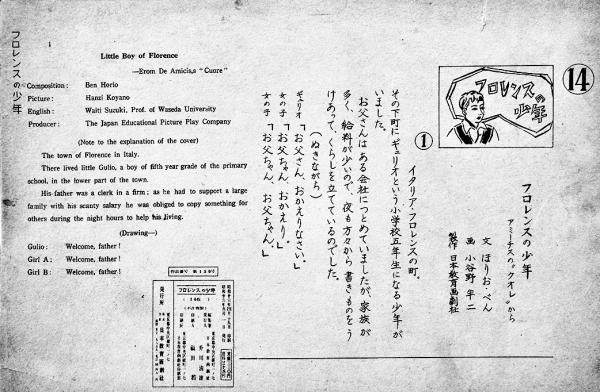 フロレンスの少年
1
Little Boy of Florence
—Erom De Amicis,s "Cuore"
Composition: Ben Horio
Picture: Hanzi Koyano
English: Waiti Suzuki, Prof. of Waseda University
Producer: The Japan Educational Picture Play Company
(Note to the explanation of the cover)
The town of Florence in Italy.
There lived little Gulio, a boy of fifth year grade of the primary
school, in the lower part of the town.
His father was a clerk in a firm; as he had to support a large
family with his scanty salary he was obliged to copy something for
others during the night hours to help his living.
(Drawing—)
Gulio: Welcome, father!
Girl A: Welcome, father!
Girl B: Welcome, father!
⑭
フロレンスの少年
フロレンスの少年
アミーチスの“クオレ”から
文 ほりお・べん
画 小谷野 半二
製作 日本教育画劇社
①
イタリア・フロレンスの町。
その下町にギュリオという小学校五年生になる少年が
いました。
お父さんはある会社につとめていましたが、家族が
多く、給料が少いので、夜も方々から書きものをう
けあって、くらしを立てているのでした。
(ぬきながら)
ギュリオ「お父さん、おかえりなさい。」
女の子「お父ちゃん、おかえり。」
女の子「お父ちゃん、お父ちゃん。」
フロレンスの少年
発行所
日本教育画劇社